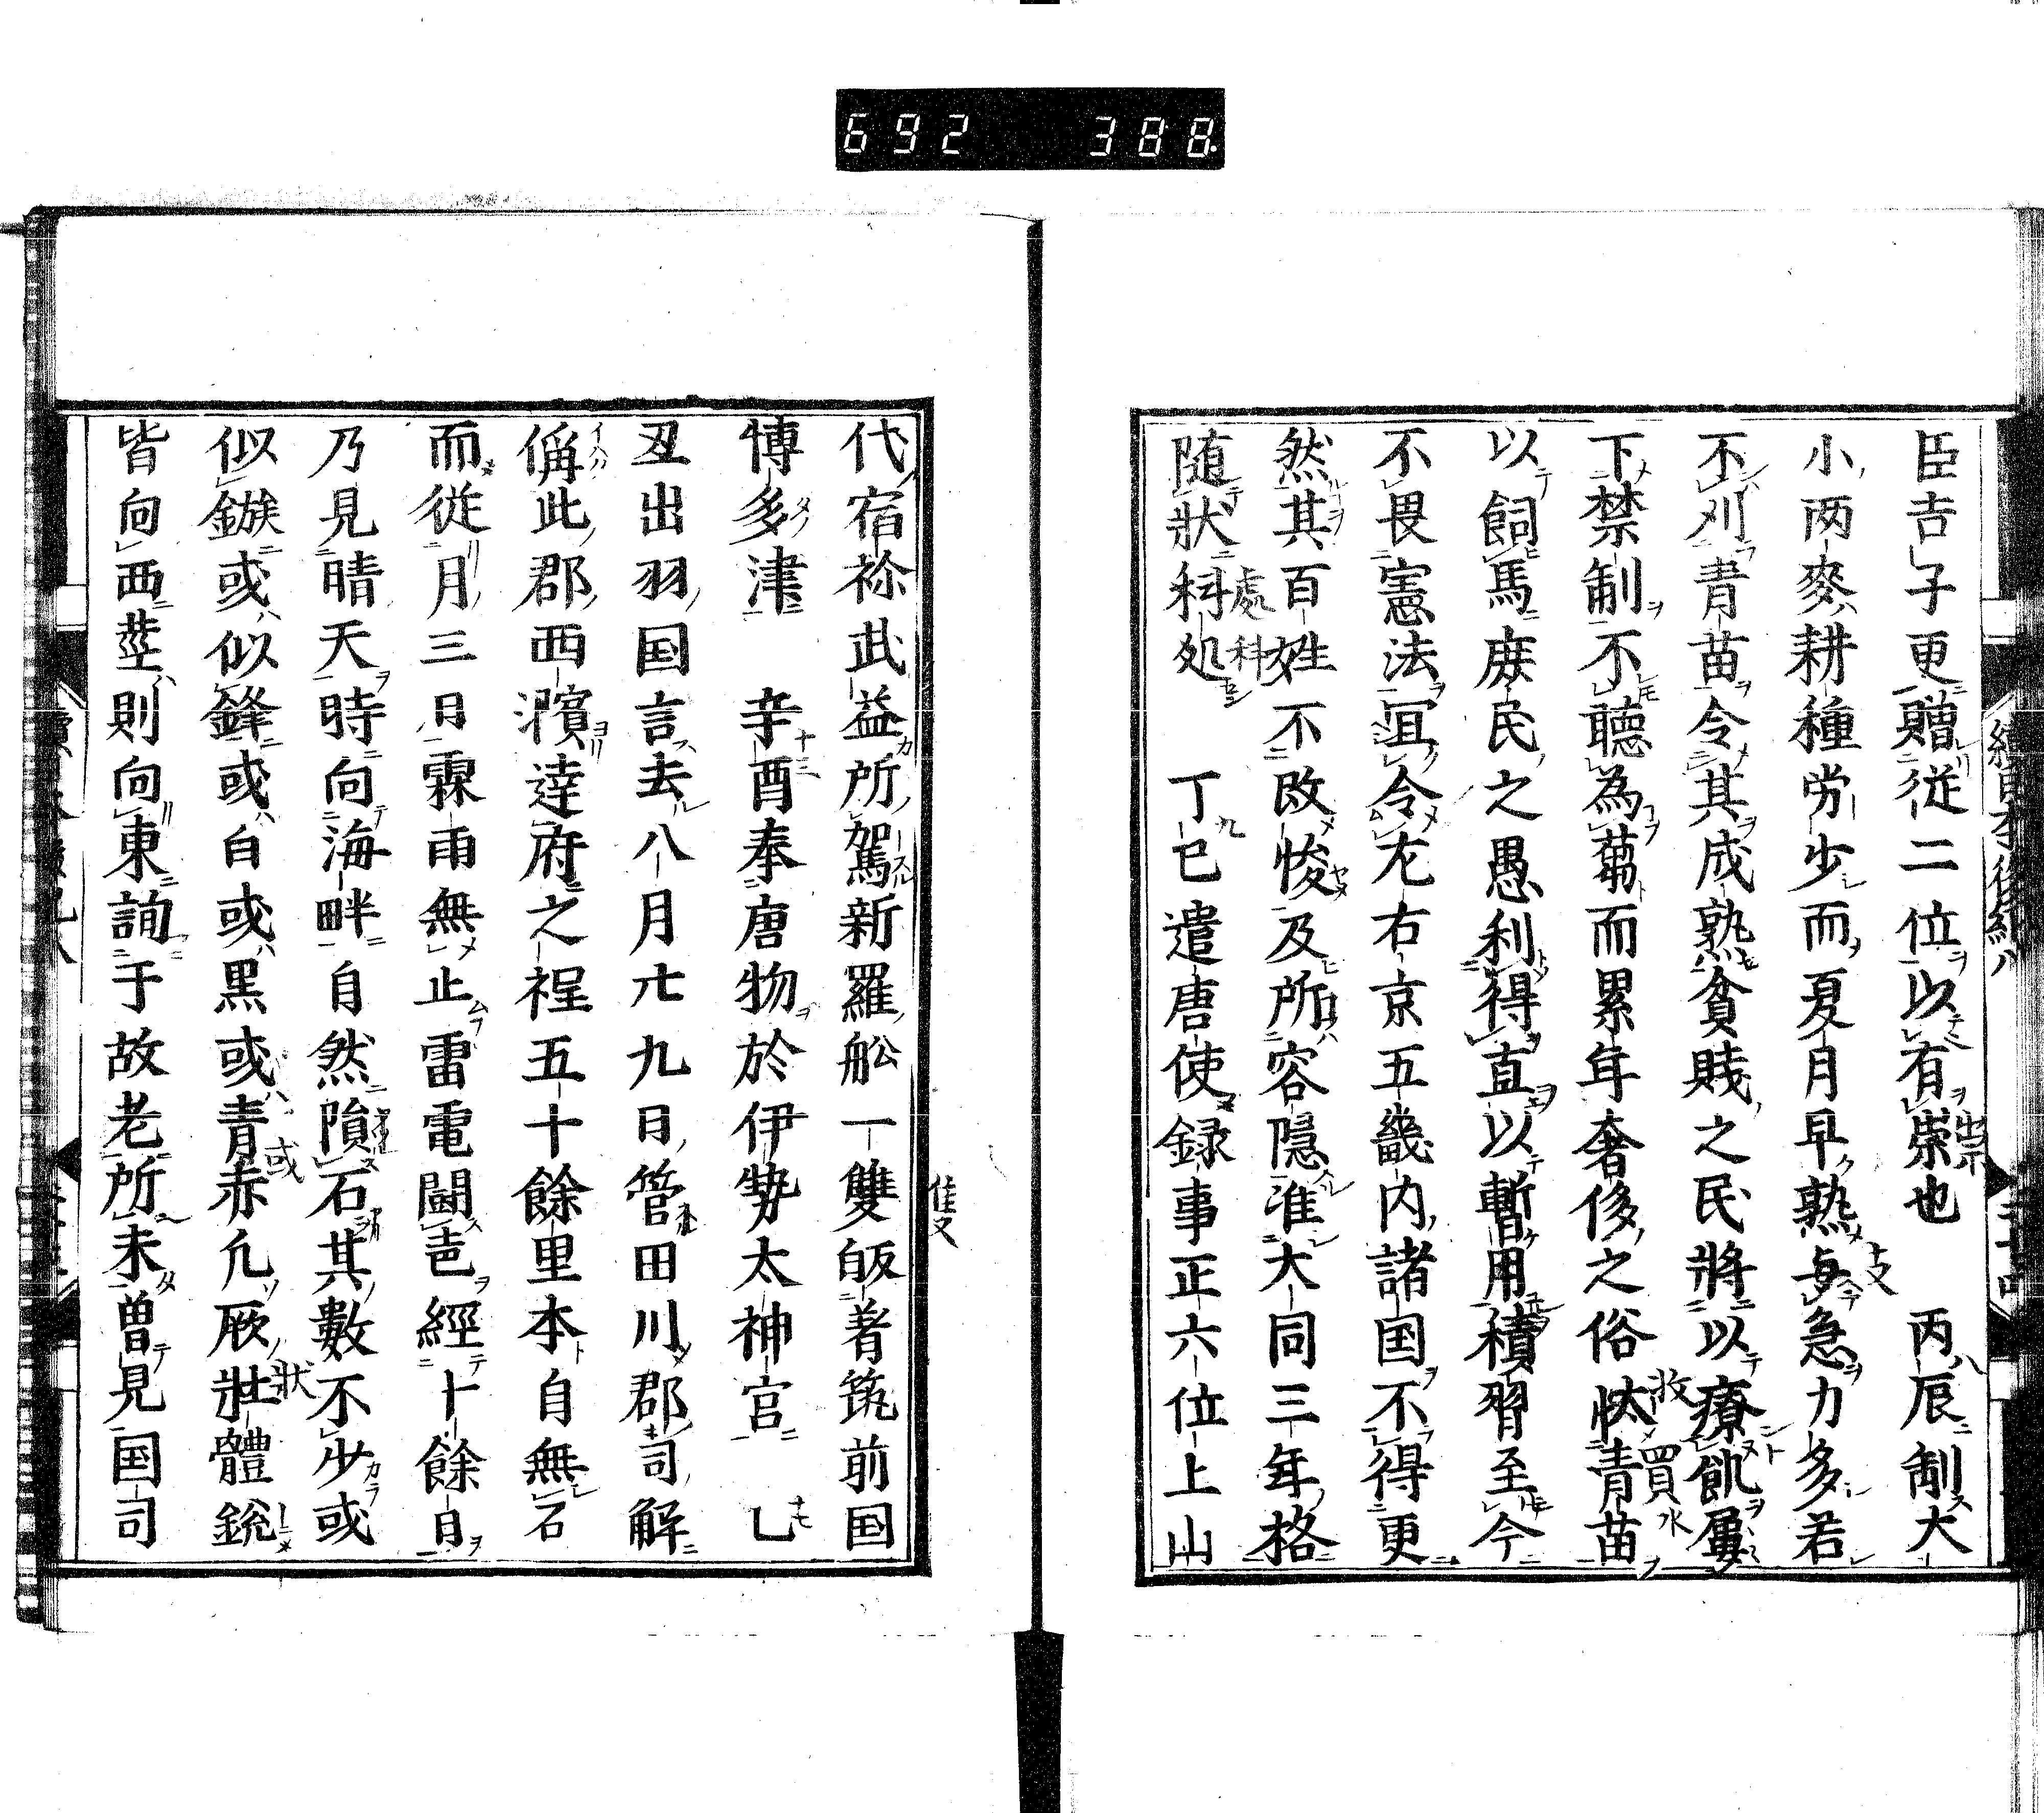 692 388
臣吉子更贈従二位以有崇也 丙辰制大
小两麥耕種労少而夏月早熟与急力多若
不刈青苗令其成熟貧賎之民將以療飢屢
下禁制不聴為蒭而累年奢侈之俗怢青苗
以飼馬庶民之愚利得直以暫用積習至今
不畏憲法冝令尤右京五畿内諸国不得更
然其百姓不改悛及所容隠准大同三年格
随狀科処 丁巳遣唐使録事正六位上山
代宿祢武益所駕新羅舩一雙皈着筑前国
博多津 辛酉奉唐物於伊勢太神宮 乙
丑出羽国言去八月廿九日管田川郡司解
偁此郡西濱達府之程五十餘里本自無石
而従月三日霖雨無止雷電闘声經十餘日
乃見晴天時向海畔自然隕石其數不少或
似鏃或似鋒或白或黒或青赤凢厥壯體鋭
皆向西莖則向東詢于故老所未曽見国司